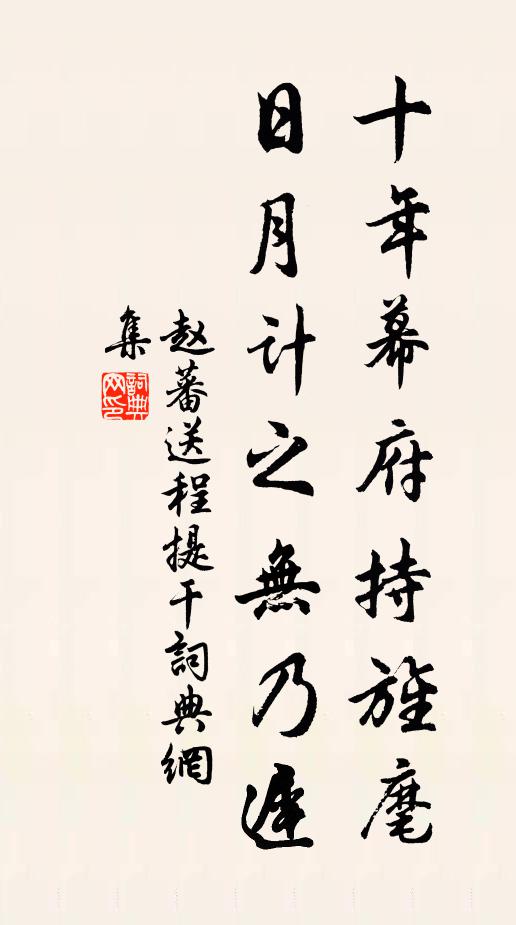 十年幕府持旌麾
日月计之無乃遲
赵蕃送程提干詞典網
集
詞典网印